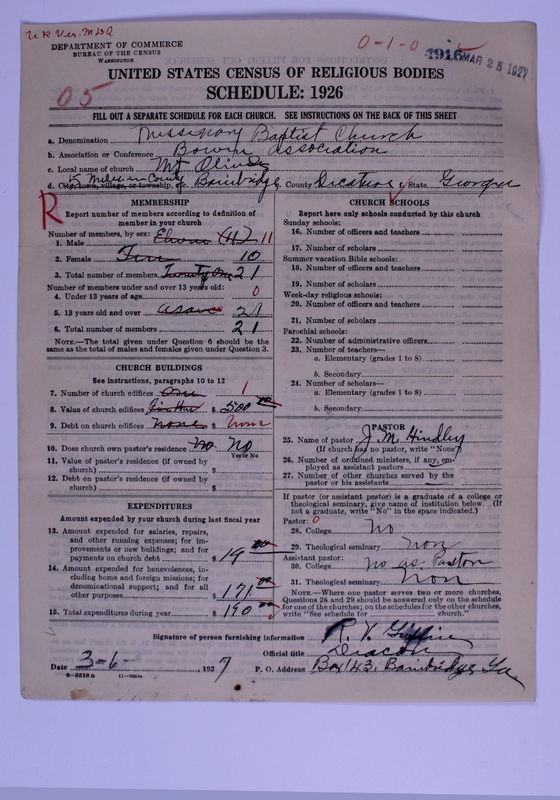 U R Ver. M
DEPARTMENT OF COMMERCE
BUREAU OF THE CENSUS
WASHINGTON
0-1-0
MAR 25 1927
05
UNITED STATES CENSUS OF RELIGIOUS BODIES
SCHEDULE: 1926
FILL OUT A SEPARATE SCHEDULE FOR EACH CHURCH. SEE INSTRUCTIONS ON THE BACK OF THIS SHEET
a. Denomination Missionary Baptist Church
b. Association or Conference Bowen association
c. Local name of church Mt Olive
d. City, town, village, or township, etc. Bainbridge County Decatur State Georgia
R
MEMBERSHIP
Report number of members according to definition of member in your church
Number of members, by sex:
1. Male Eleven (11) 11
2. Female Ten 10
3. Total number of members Twenty One 21
Number of members under and over 13 years old:
4. Under 13 years of age 0
5. 13 years old and over above 21
6. Total number of members 21
NOTE.—The total given under Question 6 should be the same as the total of males and females given under Question 3.
CHURCH BUILDINGS
See instructions, paragraphs 10 to 12
7. Number of church edifices One 1
8. Value of church edifices $ 500 00
9. Debt on church edifices none $ none
10. Does church own pastor's residence? No No
Yes or No
11. Value of pastor's residence (if owned by church) $
12. Debt on pastor's residence (if owned by church) $
EXPENDITURES
Amount expended by your church during last fiscal year
13. Amount expended for salaries, repairs, and other running expenses; for improvements or new buildings; and for payments on church debt $ 19 00
14. Amount expended for benevolences, including home and foreign missions; for denominational support; and for all other purposes $ 171 00
15. Total expenditures during year $ 190 00
CHURCH SCHOOLS
Report here only schools conducted by this church
Sunday schools:
16. Number of officers and teachers
17. Number of scholars
Summer vacation Bible schools:
18. Number of officers and teachers
19. Number of scholars
Week-day religious schools:
20. Number of officers and teachers
21. Number of scholars
Parochial schools:
22. Number of administrative officers
23. Number of teachers—
a. Elementary (grades 1 to 8)
b. Secondary
24. Number of scholars—
a. Elementary (grades 1 to 8)
b. Secondary
PASTOR
25. Name of pastor J. M. Hindley
(If church has no pastor, write "None")
26. Number of ordained ministers, if any, employed as assistant pastors
27. Number of other churches served by the pastor or his assistants
If pastor (or assistant pastor) is a graduate of a college or theological seminary, give name of institution below. (If not a graduate, write "No" in the space indicated.)
Pastor: 0
28. College No
29. Theological seminary non
Assistant pastor:
30. College no as. Pastor
31. Theological seminary non
NOTE.—Where one pastor serves two or more churches, Questions 28 and 29 should be answered only on the schedule for one of the churches; on the schedules for the other churches, write "See schedule for church."
Signature of person furnishing information R. V. Griffin
Official title Deacon
Date 3-6- 1927
P. O. Address Box 143, Bainbridge, Ga
8-5518a